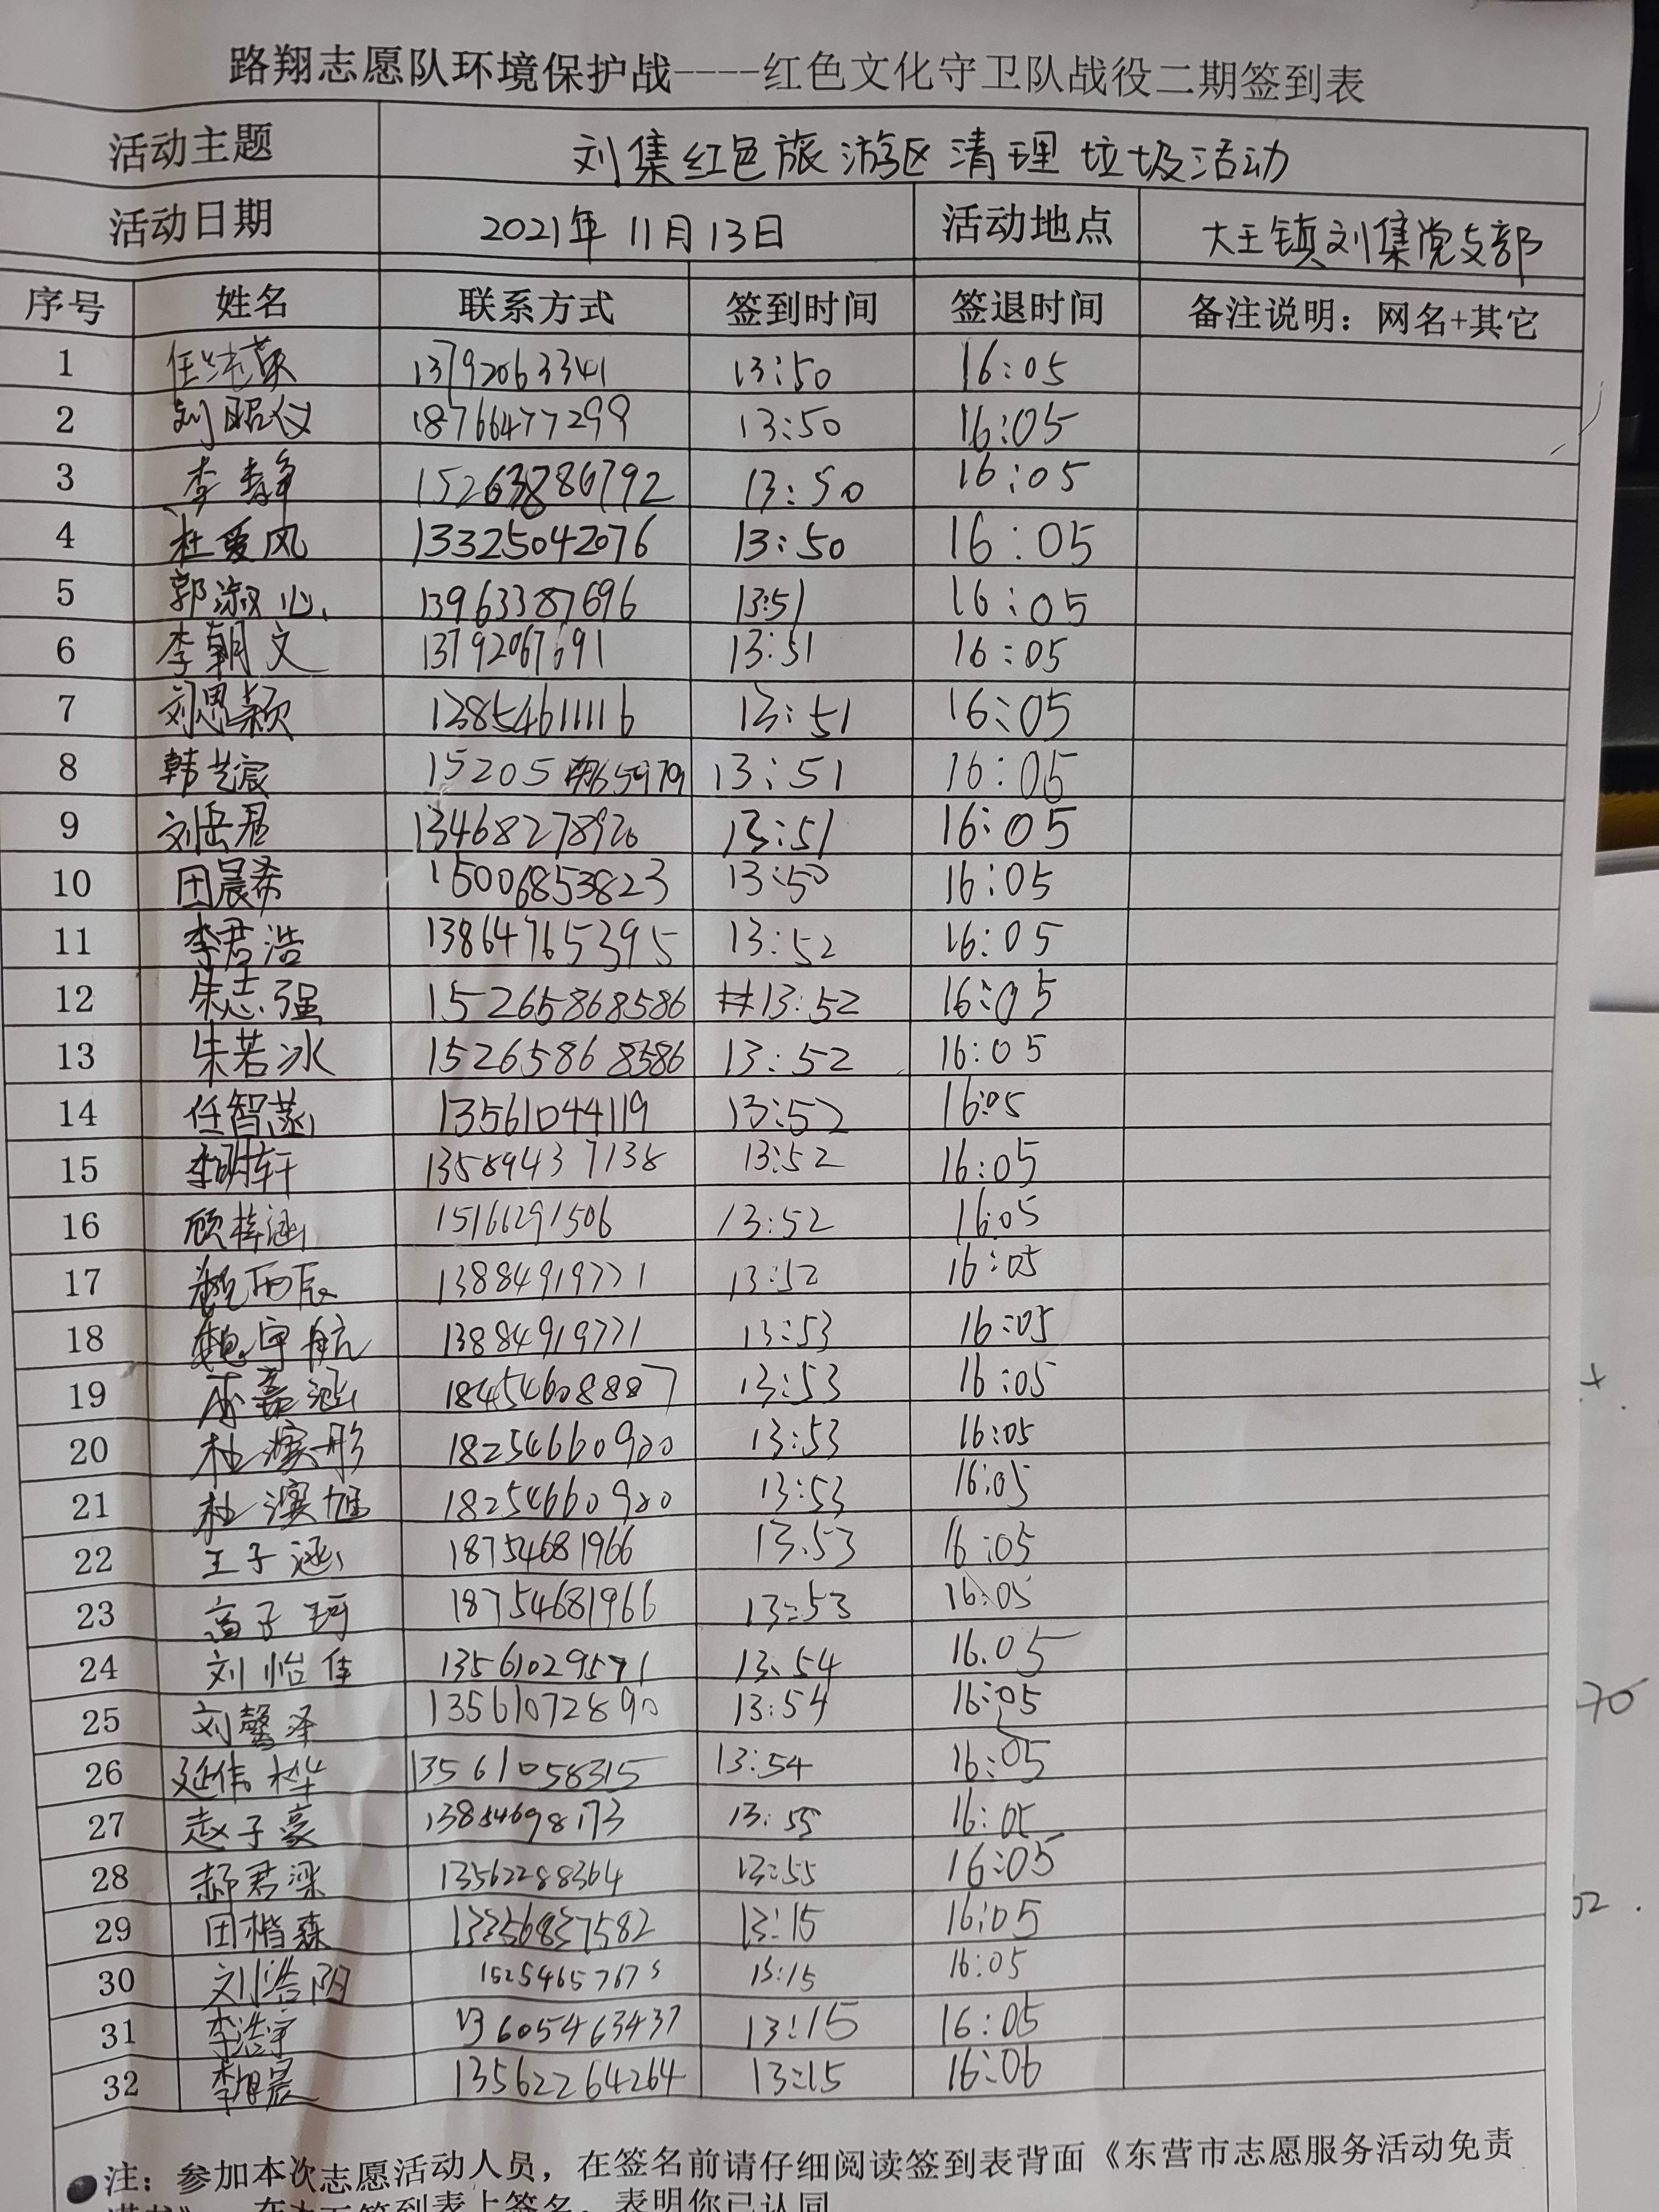 路翔志愿队环境保护战----红色文化守卫队战役二期签到表
活动主题 刘集红色旅游区清理垃圾活动
活动日期 2021年11月13日 活动地点 大王镇刘集党支部
序号 姓名 联系方式 签到时间 签退时间 备注说明：网名+其它
1 13792063341 13:50 16:05
2 刘昭仪 18766477299 13:50 16:05
3 李静 15263786792 13:50 16:05
4 杜爱风 13325042076 13:50 16:05
5 郭淑心 13963387696 13:51 16:05
6 李朝文 13792067691 13:51 16:05
7 刘思颖 13854611116 13:51 16:05
8 韩艺宸 13:51 16:05
9 刘岳君 13468278920 13:51 16:05
10 田晨希 15006853823 13:50 16:05
11 李君浩 13864765395 13:52 16:05
12 朱志强 15265868586 13:52 16:05
13 朱若冰 15265868586 13:52 16:05
14 任智菡 13561044119 13:52 16:05
15 李明轩 13589437138 13:52 16:05
16 顾梓涵 15166291506 13:52 16:05
17 13884919771 13:52 16:05
18 魏宇航 13884919771 13:53 16:05
19 李嘉涵 18454608887 13:53 16:05
20 杜演彤 18254660920 13:53 16:05
21 杜演旭 18254660920 13:53 16:05
22 王子涵 18754681966 13:53 16:05
23 高子珂 18754681966 13:53 16:05
24 刘怡佳 13561029571 13:54 16.05
25 刘馨泽 13561072890 13:54 16:05
26 延伟桦 13561058315 13:54 16:05
27 赵子豪 13854698173 13:55 16:05
28 郝君梁 13562288364 13:55 16:05
29 田楷森 13356837582 13:15 16:05
30 刘浩阳 15254657675 13:15 16:05
31 李浩宇 13605463437 13:15 16:05
32 李旭晨 13562264264 13:15 16:06
●注：参加本次志愿活动人员，在签名前请仔细阅读签到表背面《东营市志愿服务活动免责
签到表上签名，表明你已认同